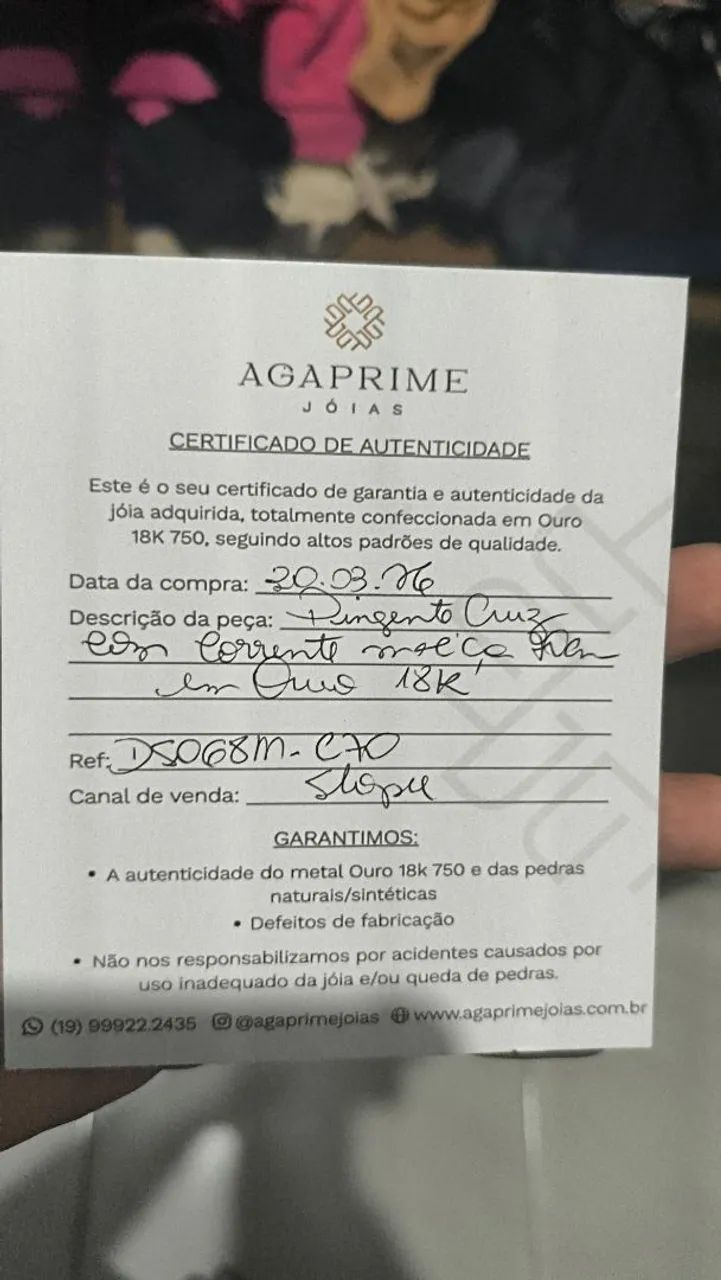 AGAPRIME
JÓIAS
CERTIFICADO DE AUTENTICIDADE
Este é o seu certificado de garantia e autenticidade da
jóia adquirida, totalmente confeccionada em Ouro
18K 750, seguindo altos padrões de qualidade.
Data da compra: 20.03.26
Descrição da peça: Pingente Cruz
com corrente
em Ouro 18K
Ref: DS068M-C70
Canal de venda: Shopee
GARANTIMOS:
• A autenticidade do metal Ouro 18k 750 e das pedras
naturais/sintéticas
• Defeitos de fabricação
• Não nos responsabilizamos por acidentes causados por
uso inadequado da jóia e/ou queda de pedras.
(19) 99922.2435 @agaprimejoias www.agaprimejoias.com.br